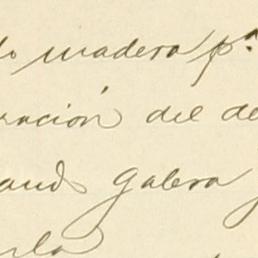 do madera pª
ración del de
ando galera y